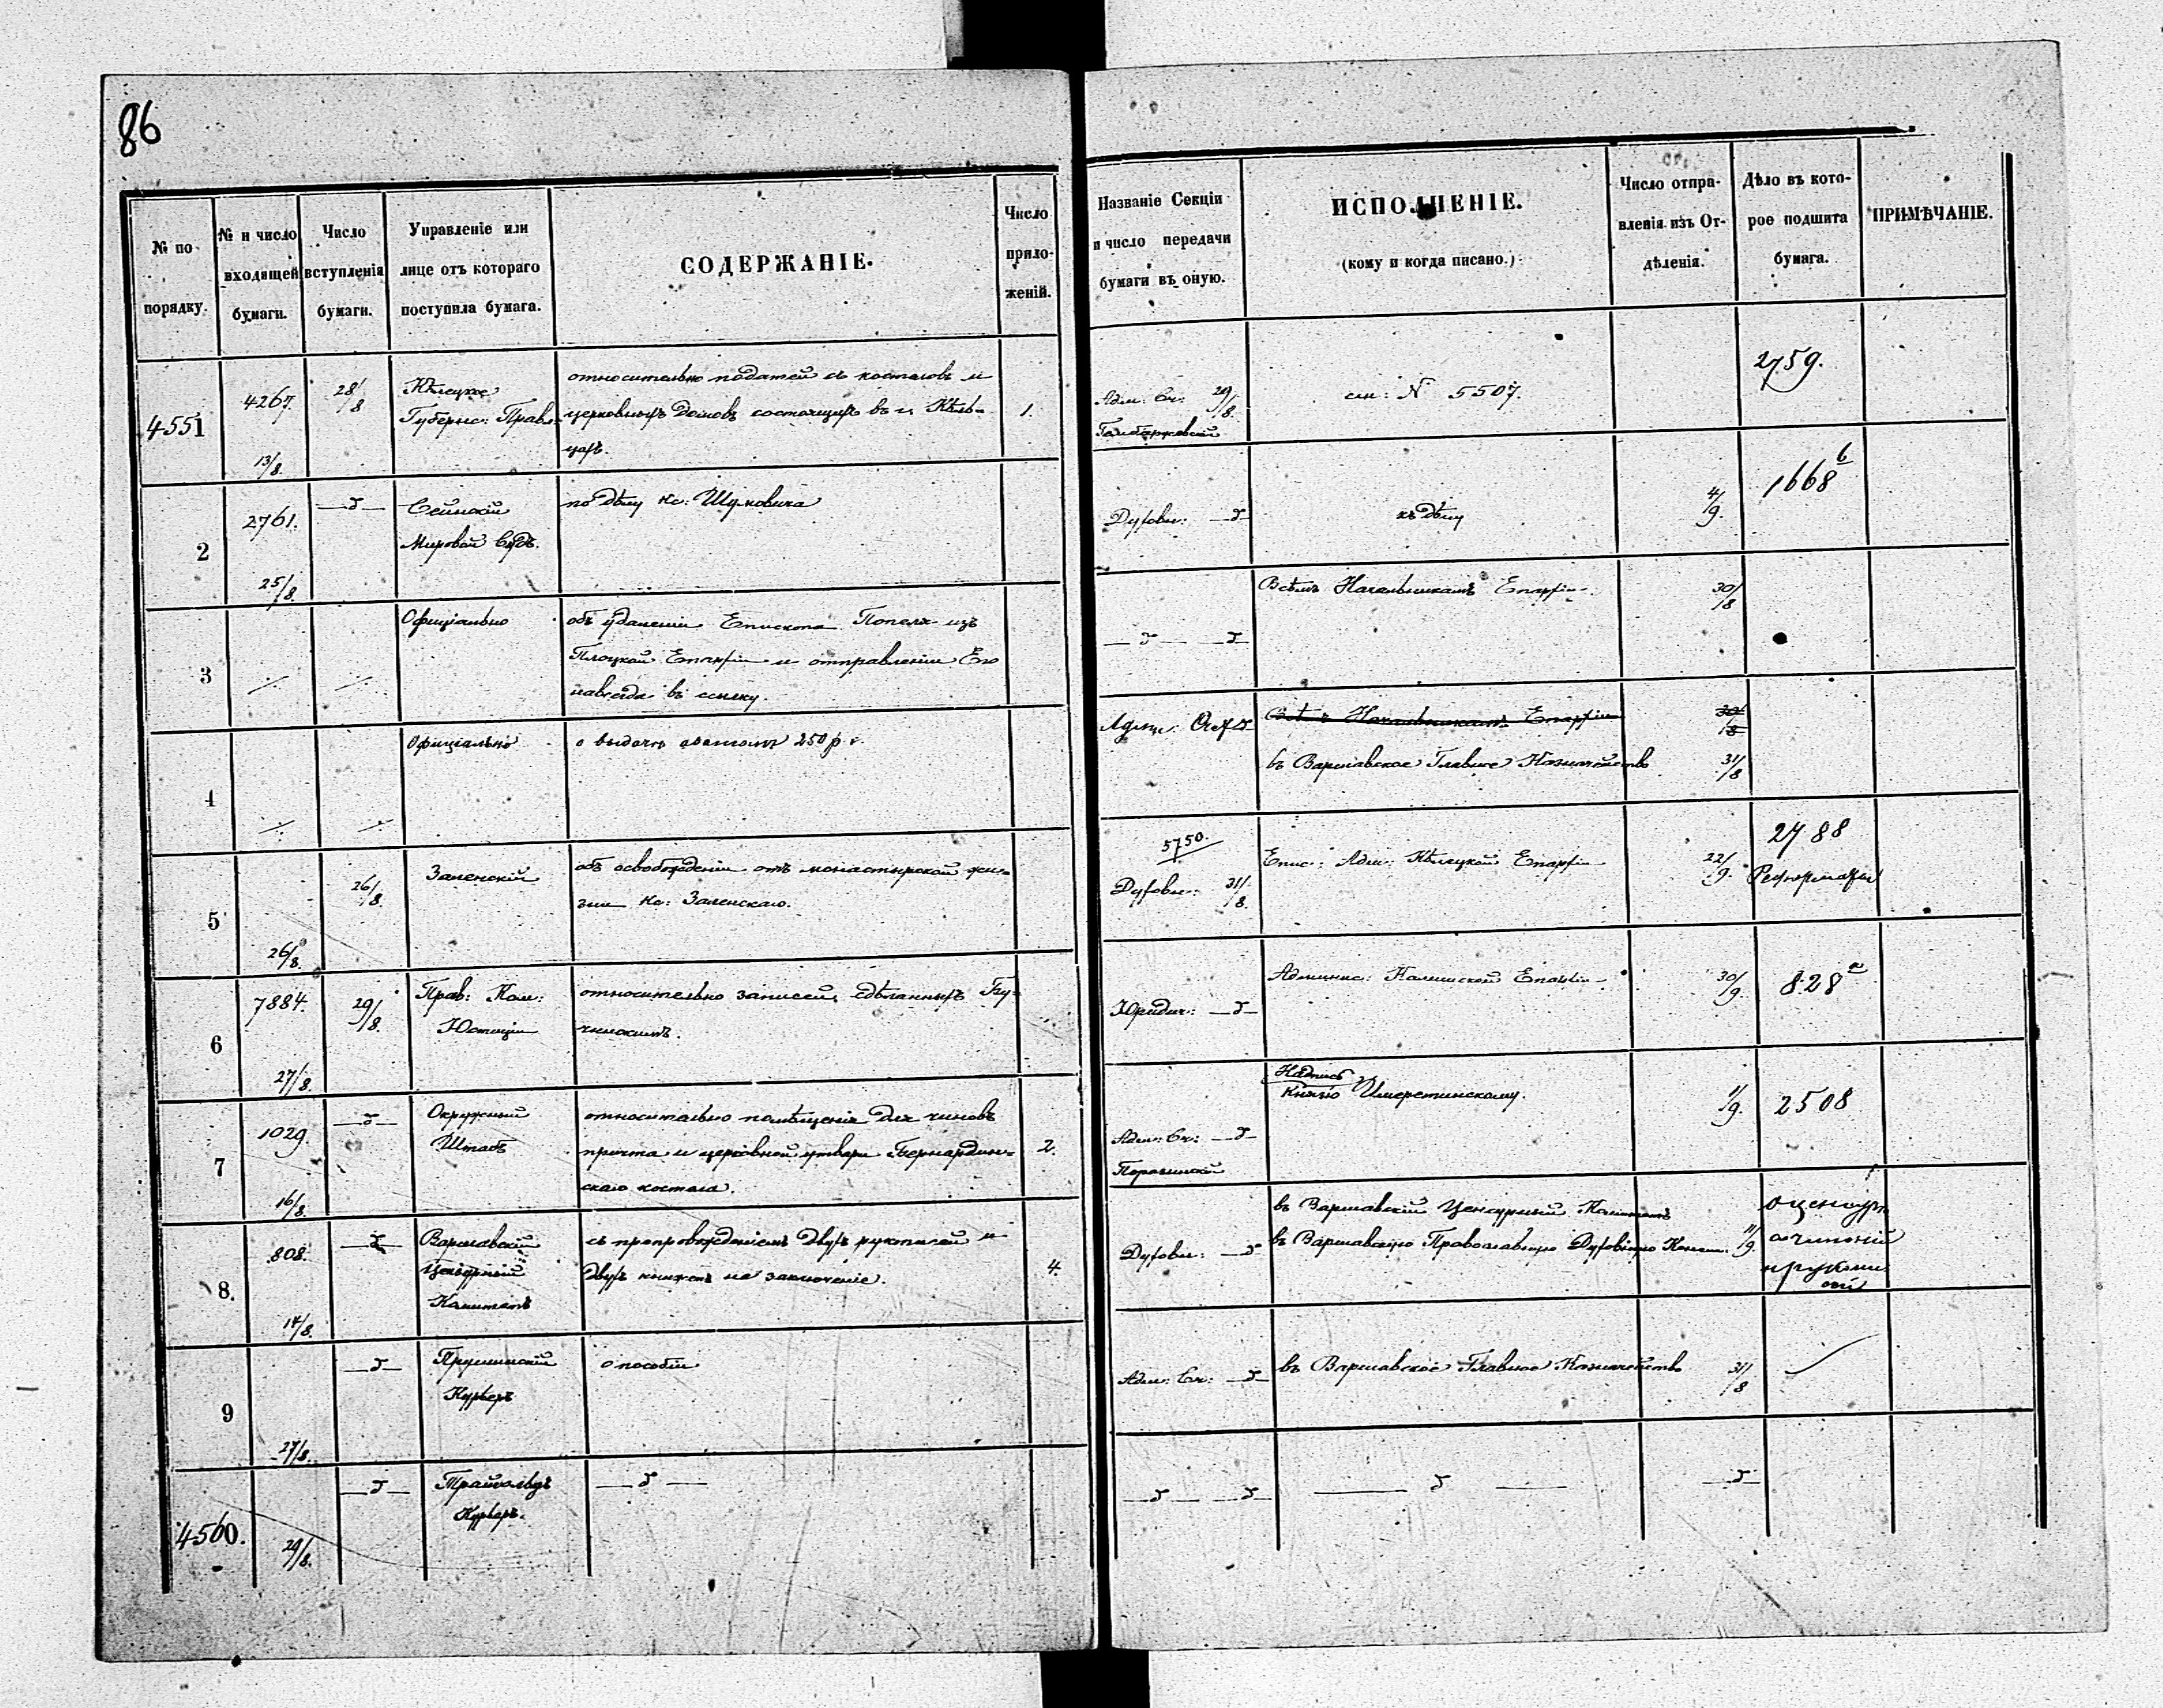 86
№ по порядку.
№ и число входящей бумаги.
Число вступленія бумаги.
Управленіе или лице отъ котораго поступила бумага.
СОДЕРЖАНІЕ.
Число приложеній.
Названіе Секціи и число передачи бумаги въ оную.
ИСПОЛНЕНІЕ.
(кому и когда писано.)
Число отправленія изъ Отдѣленія.
Дѣло въ которое подшита бумага.
ПРИМѢЧАНІЕ.
4551
4267.
13/8.
28/8
Кѣлецкое
Губернс: Правл.
относительно податей съ костеловъ и
церковныхъ домовъ состоящихъ въ г. Кѣль-
цахъ.
1.
Адм: Сч: 29/8.
см: № 5507.
2759.
2
2761.
25/8.
—д—
Сейнскій
Мировой Судъ.
по дѣлу Кс: Шумовича
Духовн: —д—
къ дѣлу
4/9.
1668
3
Офиціально
объ удаленіи Епископа Попеля изъ
Плоцкой Епархіи и отправленіи Его
навсегда въ ссылку.
—д— —д—
Всѣмъ Начальникамъ Епархіи
30/8
4
Офиціально
о выдачѣ авансомъ 250 р. с.
Всѣмъ Начальникамъ Епархіи
30/8
въ Варшавское Главное Казначейство
31/8
5
26/8.
26/8.
Заленскій
объ освобожденіи отъ монастырской жи-
зни Кс: Заленскаго.
5750.
Духовн: 31/8.
Епис: Адм: Кѣлецкой Епархіи
22/9.
2788
Реформаты
6
7884.
27/8.
29/8.
Прав: Ком:
Юстиціи
относительно записей, сдѣланныхъ
Юридич: —д—
Админис: Калишской Епархіи
30/9.
828 а
7
1029.
16/8.
—д—
Окружный
Штабъ
относительно помѣщенія для чиновъ
причта и церковной утвари Бернардин-
скаго костела.
2.
Адм: Сч: —д—
Надпись
Князю Имеретинскому.
1/9.
2508
8.
808.
14/8.
—д—
Варшавскій
Цензурный
Комитетъ
съ препровожденіемъ двухъ рукписей и
двухъ книжекъ на заключеніе.
4.
Духовн: —д
въ Варшавскій Цензурный Комитетъ
въ Варшавскую Православную Духовную Консис.
11/9.
9
27/8.
—д—
Курьеръ
о пособіи
Адм: Сч: —д—
въ Варшавское Главное Казначейство
31/8
4560.
29/8.
—д—
Курьеръ.
—д—
—д— —д—
—д—
—д—